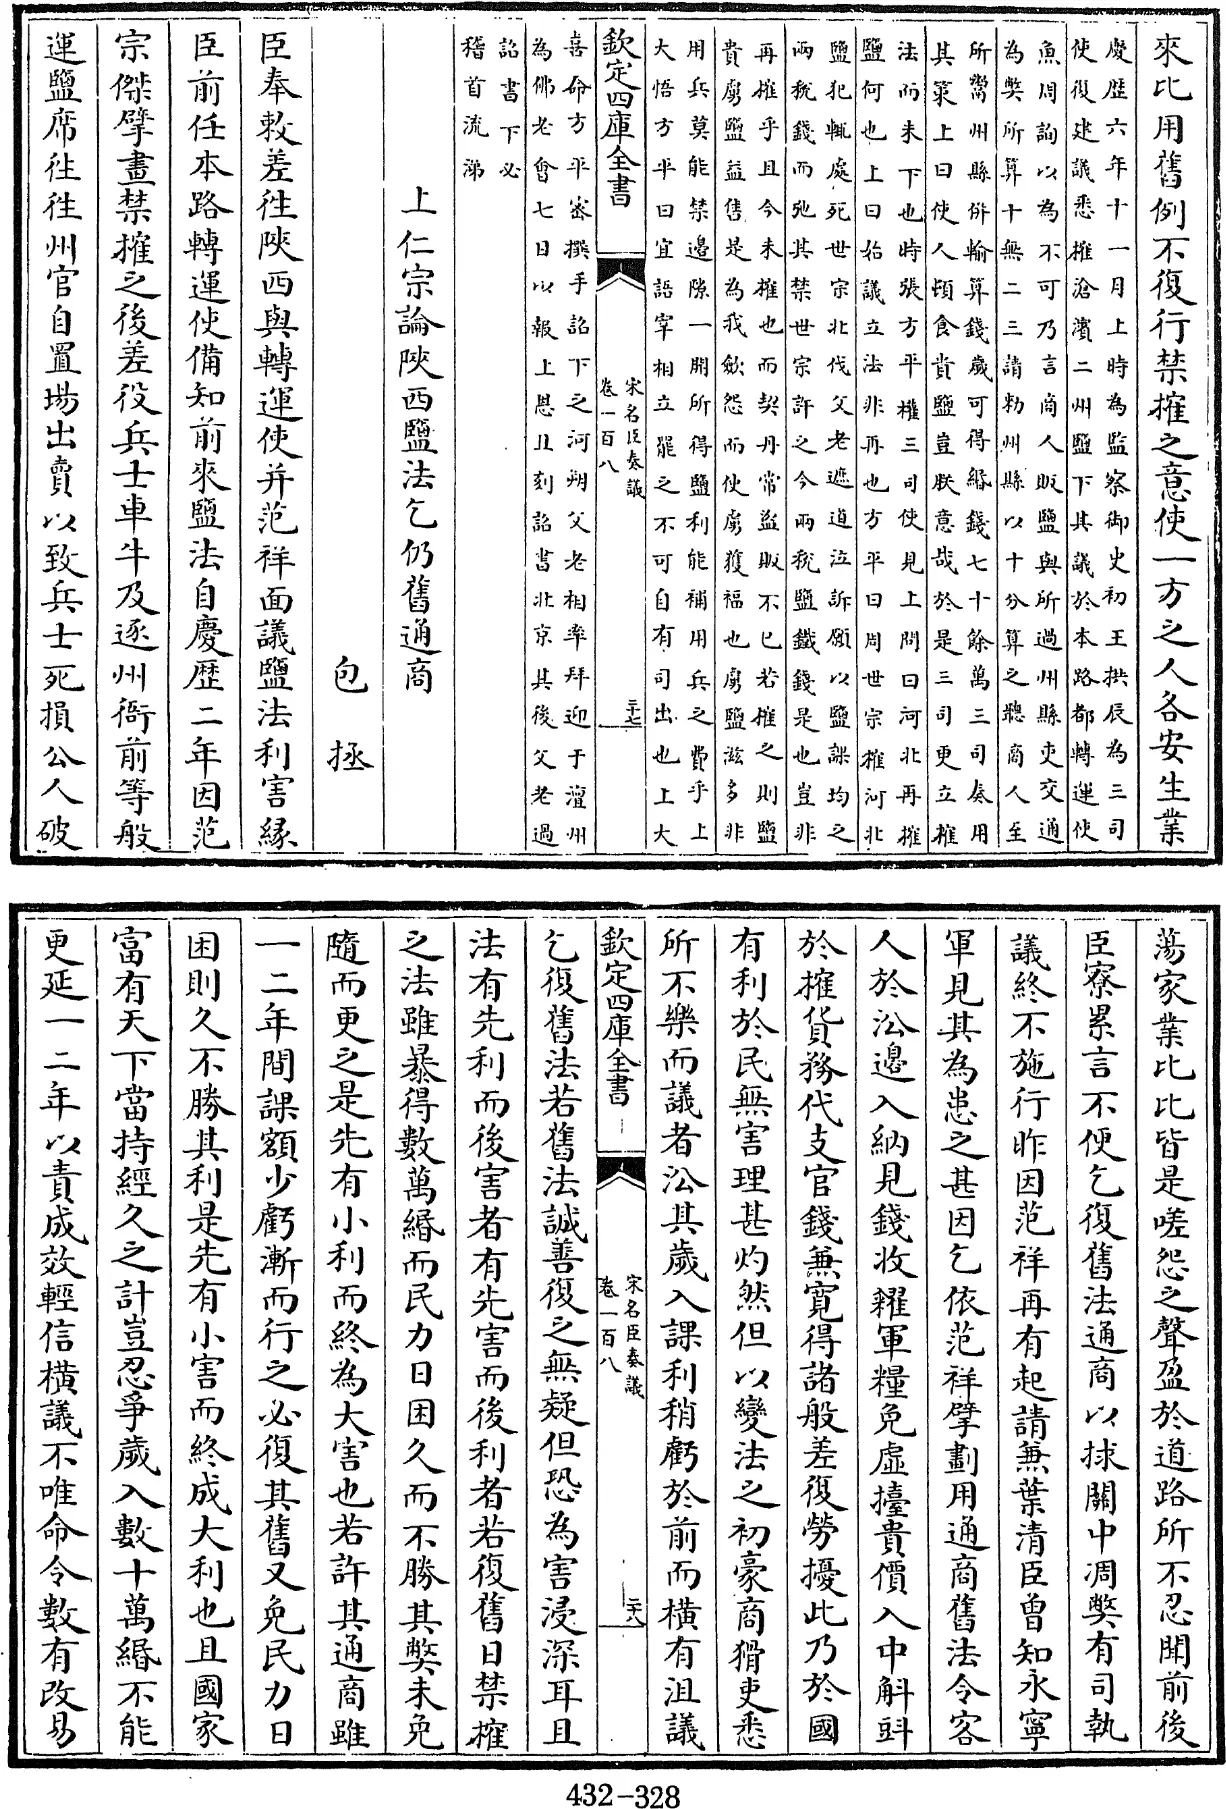 來比用舊例不復行禁㩁之意使一方之人各安生業
慶歴六年十一月上時為監察御史初王拱辰為三司
使復建議悉㩁滄濱二州鹽下其議於本路都轉運使
魚周詢以為不可乃言商人販鹽與所過州縣吏交通
為弊所算十無二三請勑州縣以十分算之聽商人至
所鬻州縣併輸算錢歲可得緡錢七十餘萬三司奏用
其策上曰使人頓食貴鹽豈朕意哉於是三司更立㩁
法而未下也時張方平權三司使見上問曰河北再㩁
鹽何也上曰始議立法非再也方平曰周世宗㩁河北
鹽犯輒處死世宗北伐父老遮道泣訴願以鹽課均之
兩税錢而弛其禁世宗許之今兩税鹽鐵錢是也豈非
再㩁乎且今未㩁也而契丹常盜販不已若㩁之則鹽
貴虜鹽益售是為我歛怨而使虜獲福也虜鹽滋多非
用兵莫能禁邊隙一開所得鹽利能補用兵之費乎上
大悟方平曰宜語宰相立罷之不可自有司出也上大
欽定四庫全書
宋名臣奏議
卷一百八
二十七
喜命方平密撰手詔下之河朔父老相率拜迎于澶州
為佛老會七日以報上恩且刻詔書北京其後父老過
詔書下必
稽首流涕
上仁宗論陜西鹽法乞仍舊通商
包拯
臣奉敕差往陜西與轉運使并范祥面議鹽法利害緣
臣前任本路轉運使備知前來鹽法自慶歴二年因范
宗傑擘畫禁㩁之後差役兵士車牛及逐州衙前等般
運鹽席往往州官自置塲出賣以致兵士死損公人破
蕩家業比比皆是嗟怨之聲盈於道路所不忍聞前後
臣寮累言不便乞復舊法通商以捄關中凋弊有司執
議終不施行昨因范祥再有起請兼葉清臣曾知永寧
軍見其為患之甚因乞依范祥擘劃用通商舊法令客
人於㳂邊入納見錢收糴軍糧免虛擡貴價入中斛㪷
於㩁貨務代支官錢兼寛得諸般差復勞擾此乃於國
有利於民無害理甚灼然但以變法之初豪商猾吏悉
所不樂而議者㳂其歲入課利稍虧於前而橫有沮議
欽定四庫全書
宋名臣奏議
卷一百八
二十八
乞復舊法若舊法誠善復之無疑但恐為害浸深耳且
法有先利而後害者有先害而後利者若復舊日禁㩁
之法雖暴得數萬緡而民力日困久而不勝其弊未免
隨而更之是先有小利而終為大害也若許其通商雖
一二年間課額少虧漸而行之必復其舊又免民力日
困則久不勝其利是先有小害而終成大利也且國家
富有天下當持經久之計豈忍爭歲入數十萬緡不能
更延一二年以責成效輕信橫議不唯命令數有改易
432-328